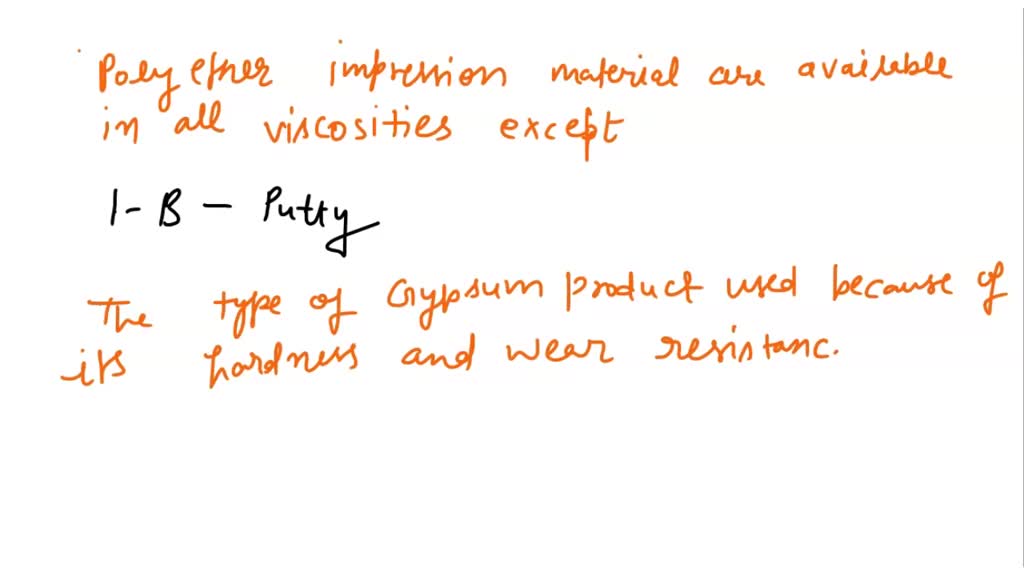 Polyether impression material are available
in all viscosities except
1-B - Putty
The type of Gypsum product used because of
its hardness and wear resistanc.